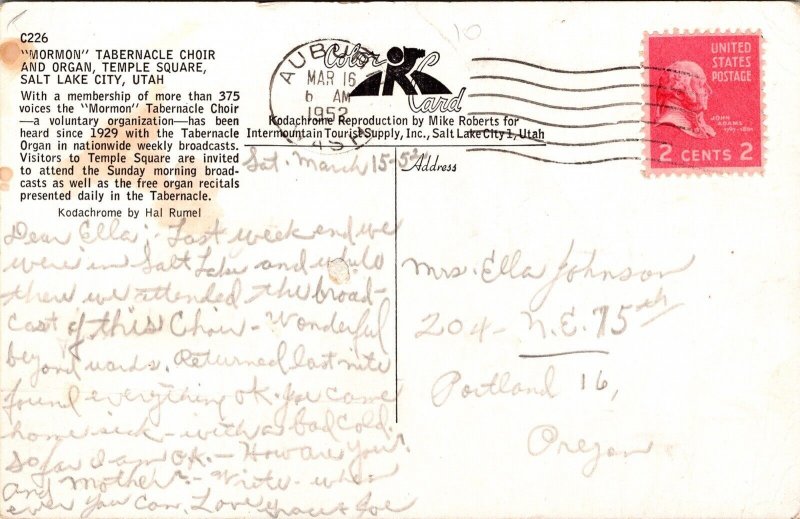 C226
"MORMON" TABERNACLE CHOIR
AND ORGAN, TEMPLE SQUARE,
SALT LAKE CITY, UTAH
With a membership of more than 375
voices the "Mormon" Tabernacle Choir
—a voluntary organization—has been
heard since 1929 with the Tabernacle
Organ in nationwide weekly broadcasts.
Visitors to Temple Square are invited
to attend the Sunday morning broad-
casts as well as the free organ recitals
presented daily in the Tabernacle.
Kodachrome by Hal Rumel
10
AUBU
MAR 16
6 AM
1952
Color
K
Card
Kodachrome Reproduction by Mike Roberts for
Intermountain Tourist Supply, Inc., Salt Lake City 1, Utah
UNITED
STATES
POSTAGE
JOHN
ADAMS
1797-1801
2 CENTS 2
Sat. March 15-52
Dear Ella; - Last week end we
were in Salt Lake and while
there we attended the broad-
cast of this Choir - Wonderful
beyond words. Returned last nite
found everything OK. Joe came
home sick - with a bad cold.
So far I am OK. - How are You?
And Mother? - Write when
ever You can. Love Grace & Joe
Address
Mrs. Ella Johnson
204 - N.E. 75th
Portland 16,
Oregon